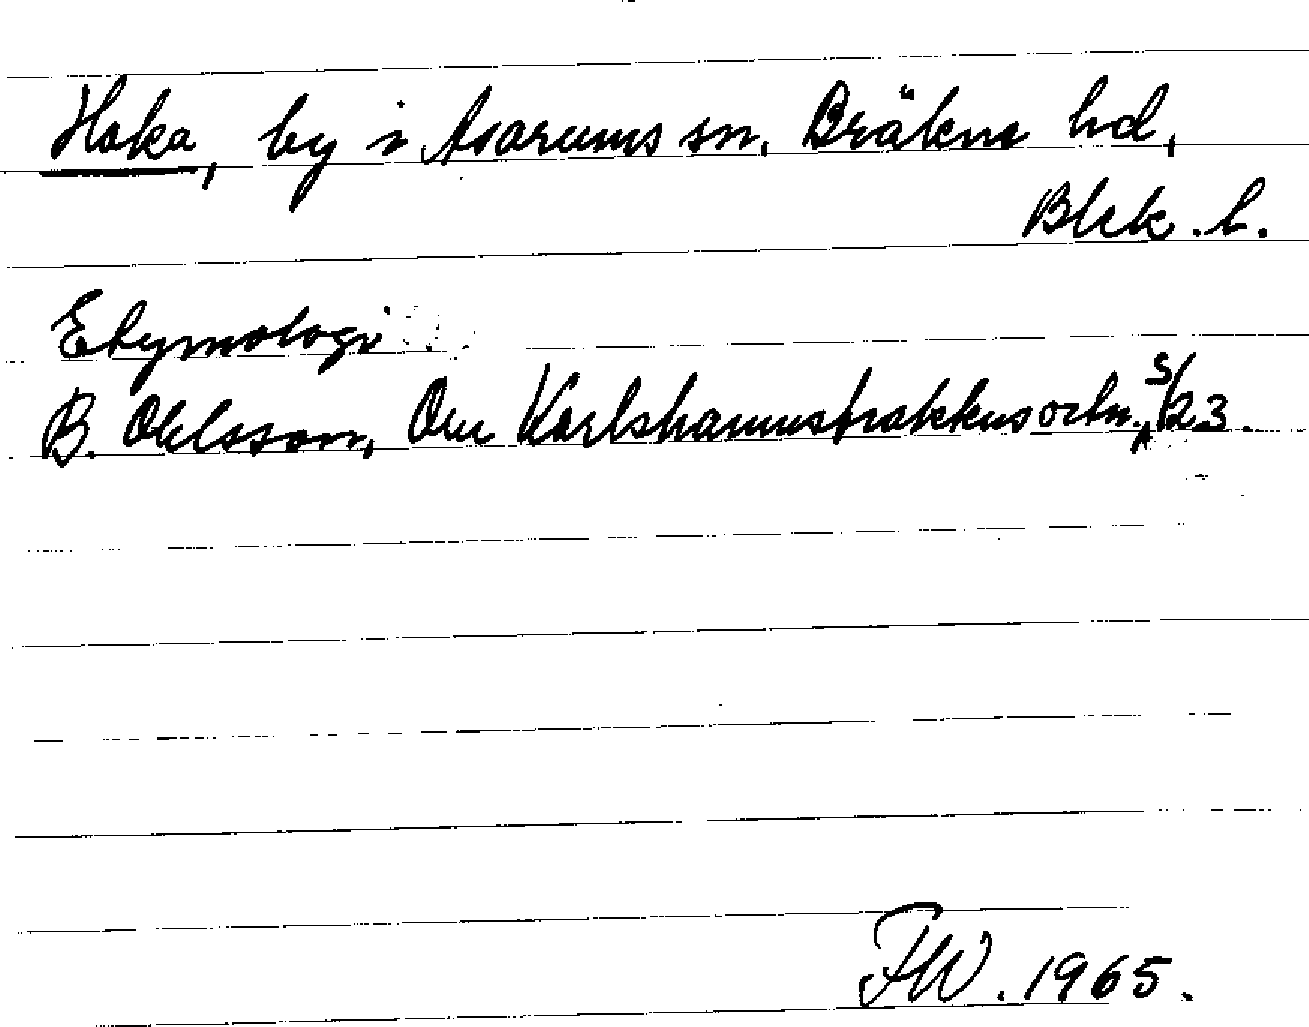 Hoka, by i Asarums sn, Bräkne hd,
Blek. l.
Etymologi
B. Ohlsson, Om Karlshamnstraktens ortn, s/23.
FW. 1965.